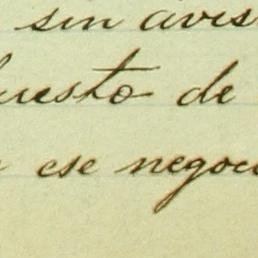 sin avis
uesto de
ese negoc